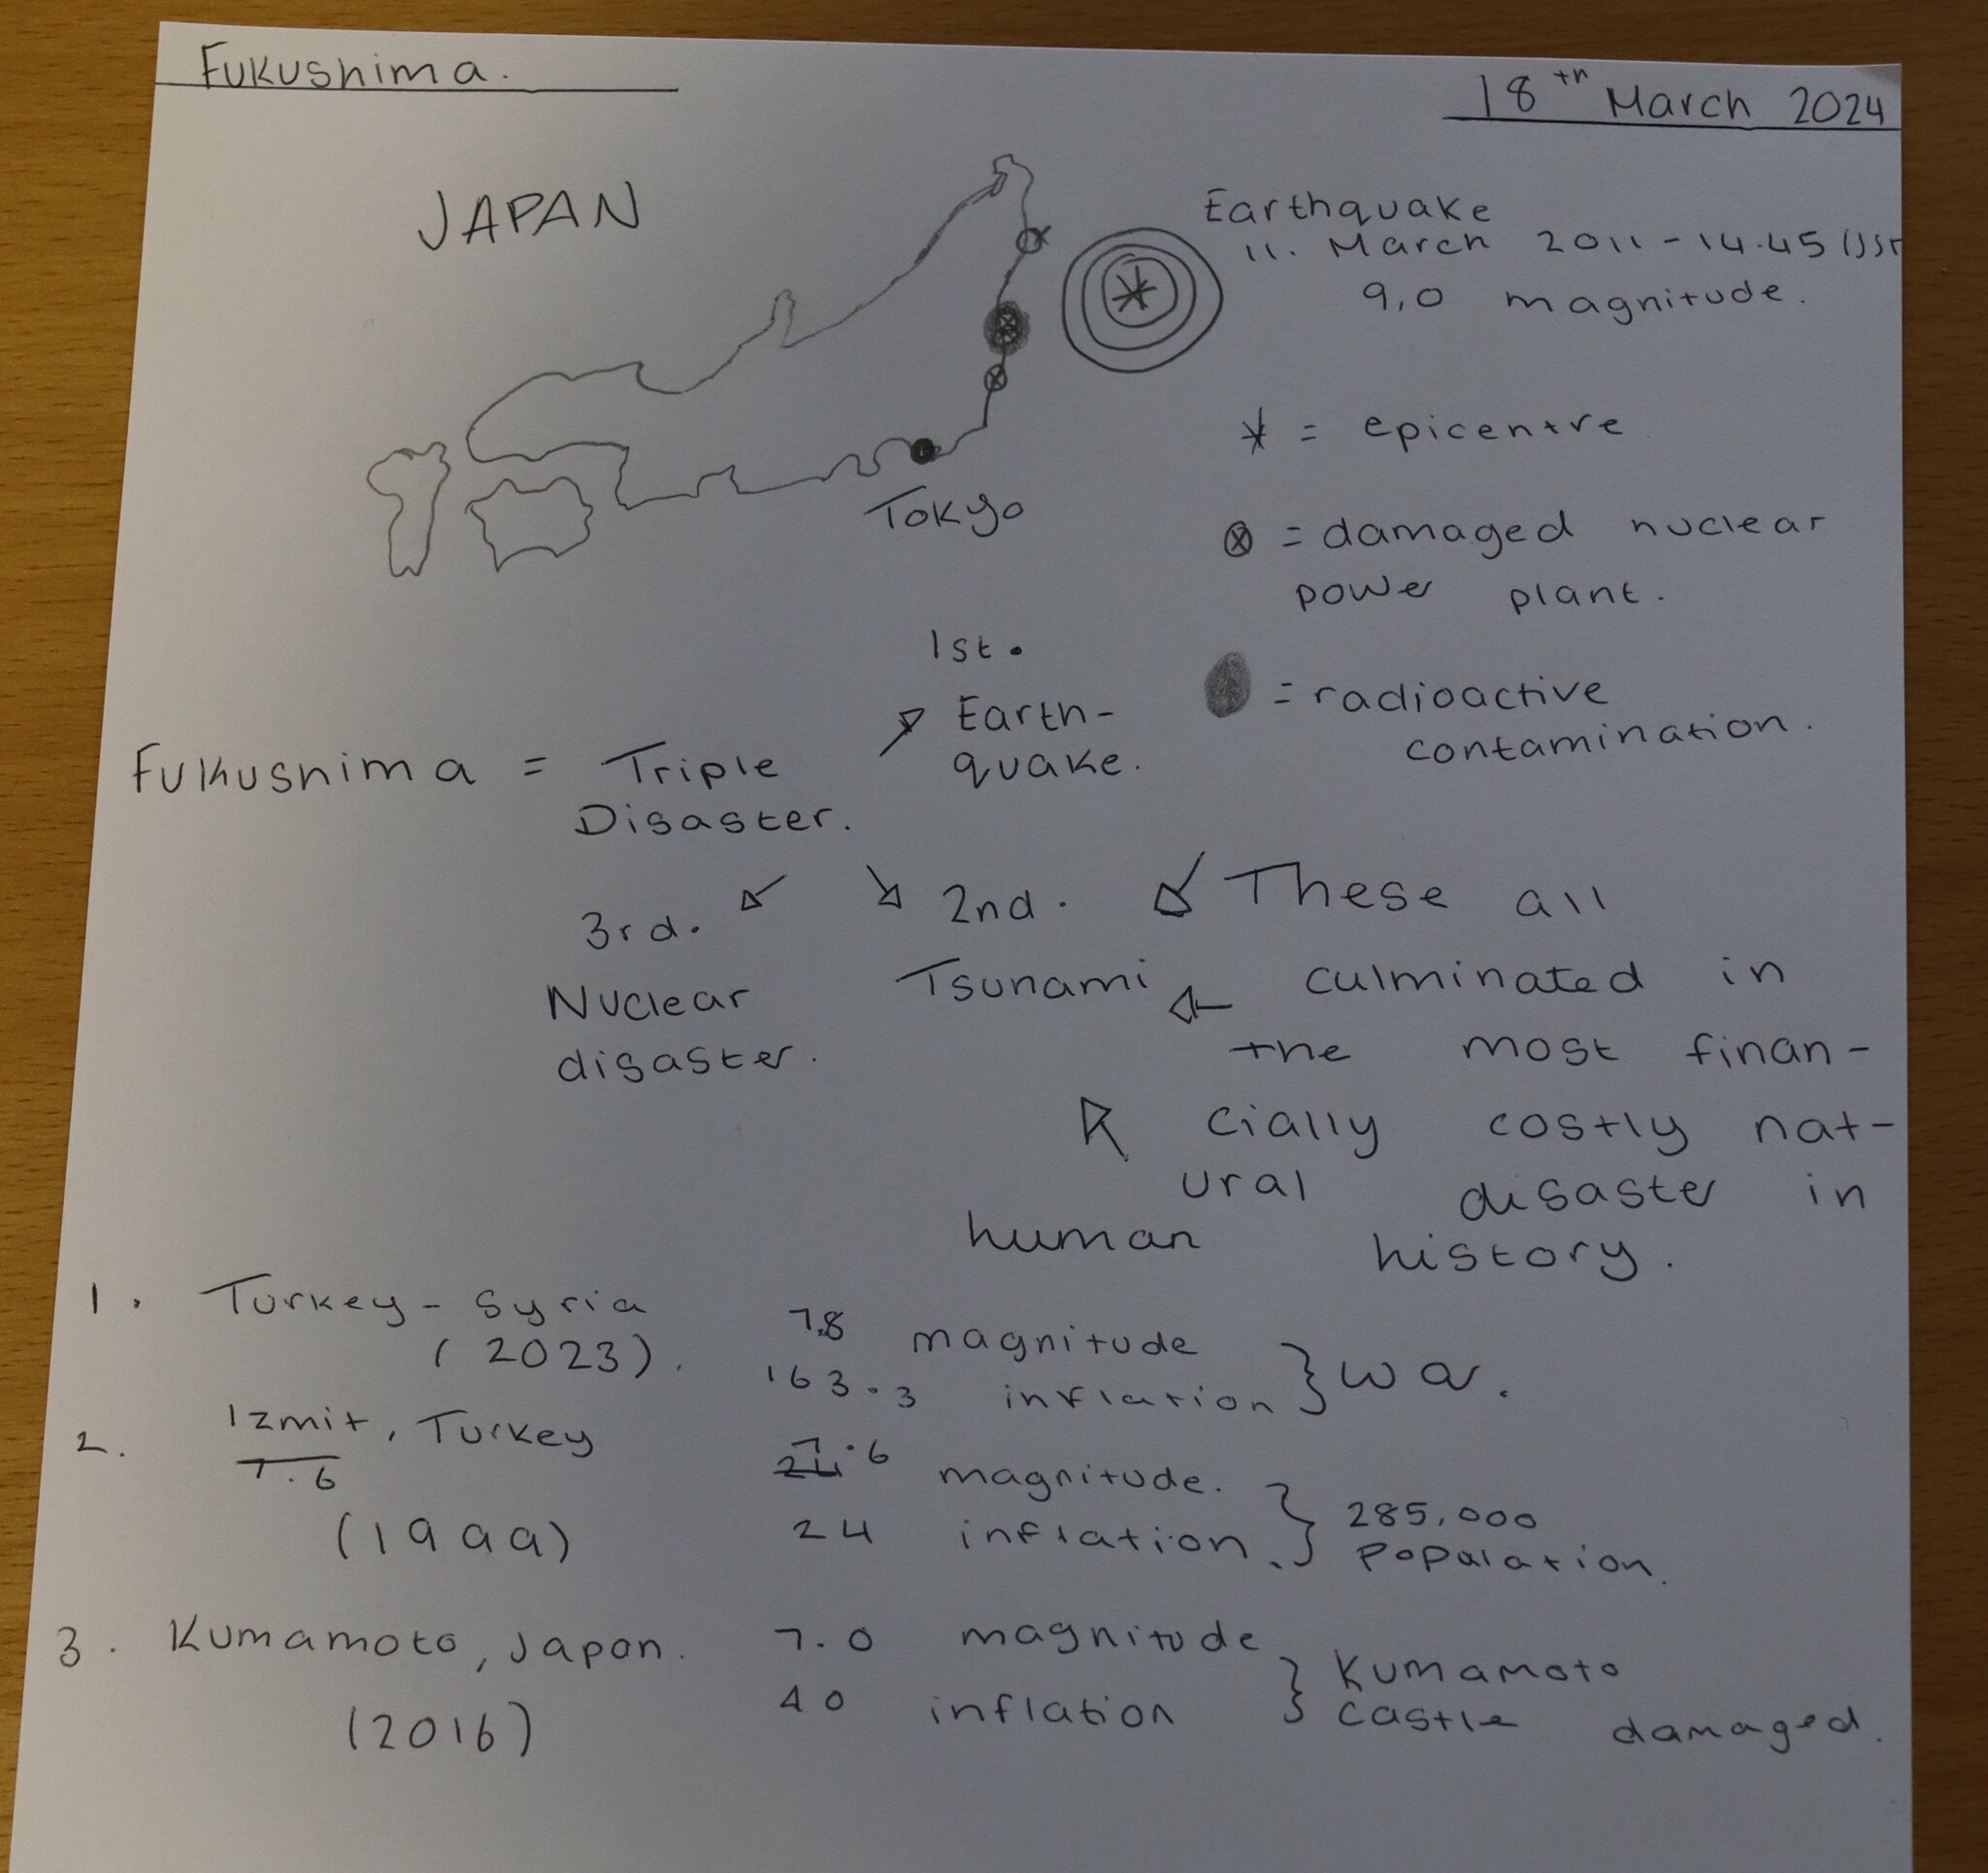 Fukushima.
18th March 2024
JAPAN
Earthquake
11. March 2011 - 14.45 (JST
9,0 magnitude.
* = epicentre
Tokyo
⊗ = damaged nuclear
power plant.
= radioactive
contamination.
1st.
Earth-
quake.
Fukushima = Triple
Disaster.
3rd.
Nuclear
disaster.
2nd.
Tsunami
These all
culminated in
the most finan-
cially costly nat-
ural disaster in
human history.
1. Turkey - Syria
(2023).
7.8 magnitude
163.3 inflation
} war.
2. Izmit, Turkey
7.6
(1999)
7.6 magnitude.
24 inflation.
} 285,000
population.
3. Kumamoto, Japan.
(2016)
7.0 magnitude
40 inflation
} Kumamoto
castle damaged.